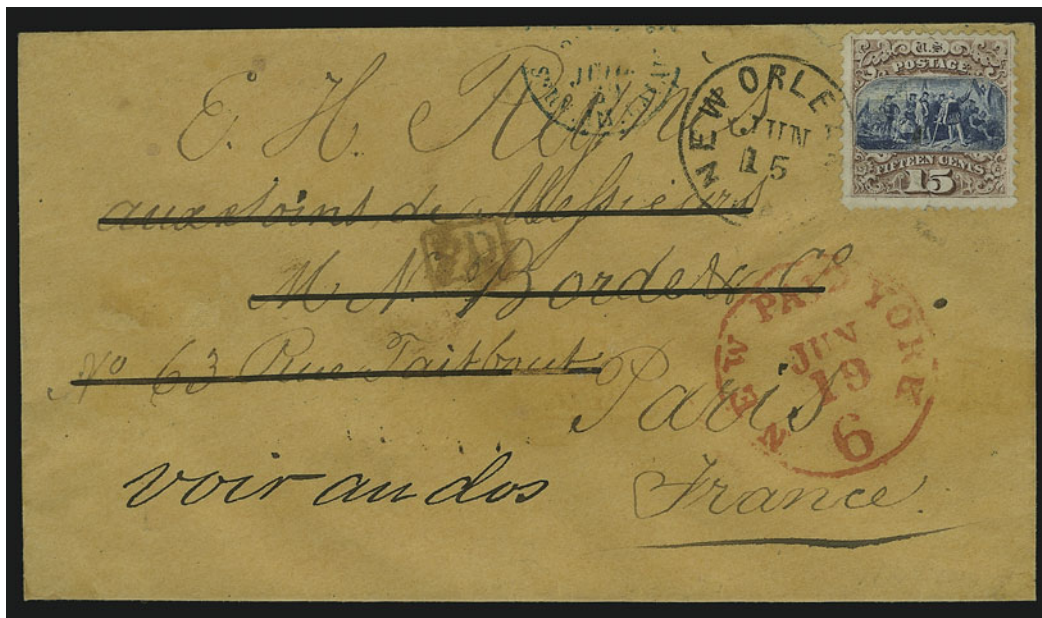 NEW ORLE
JUN
15
U.S.
POSTAGE
FIFTEEN CENTS
15
E. H.
aux soins de Messieurs
PD
M. N. Borde & Co
No 63 Rue Taitbout
Paris
NEW PAID YORK
JUN
19
6
voir au dos
France.